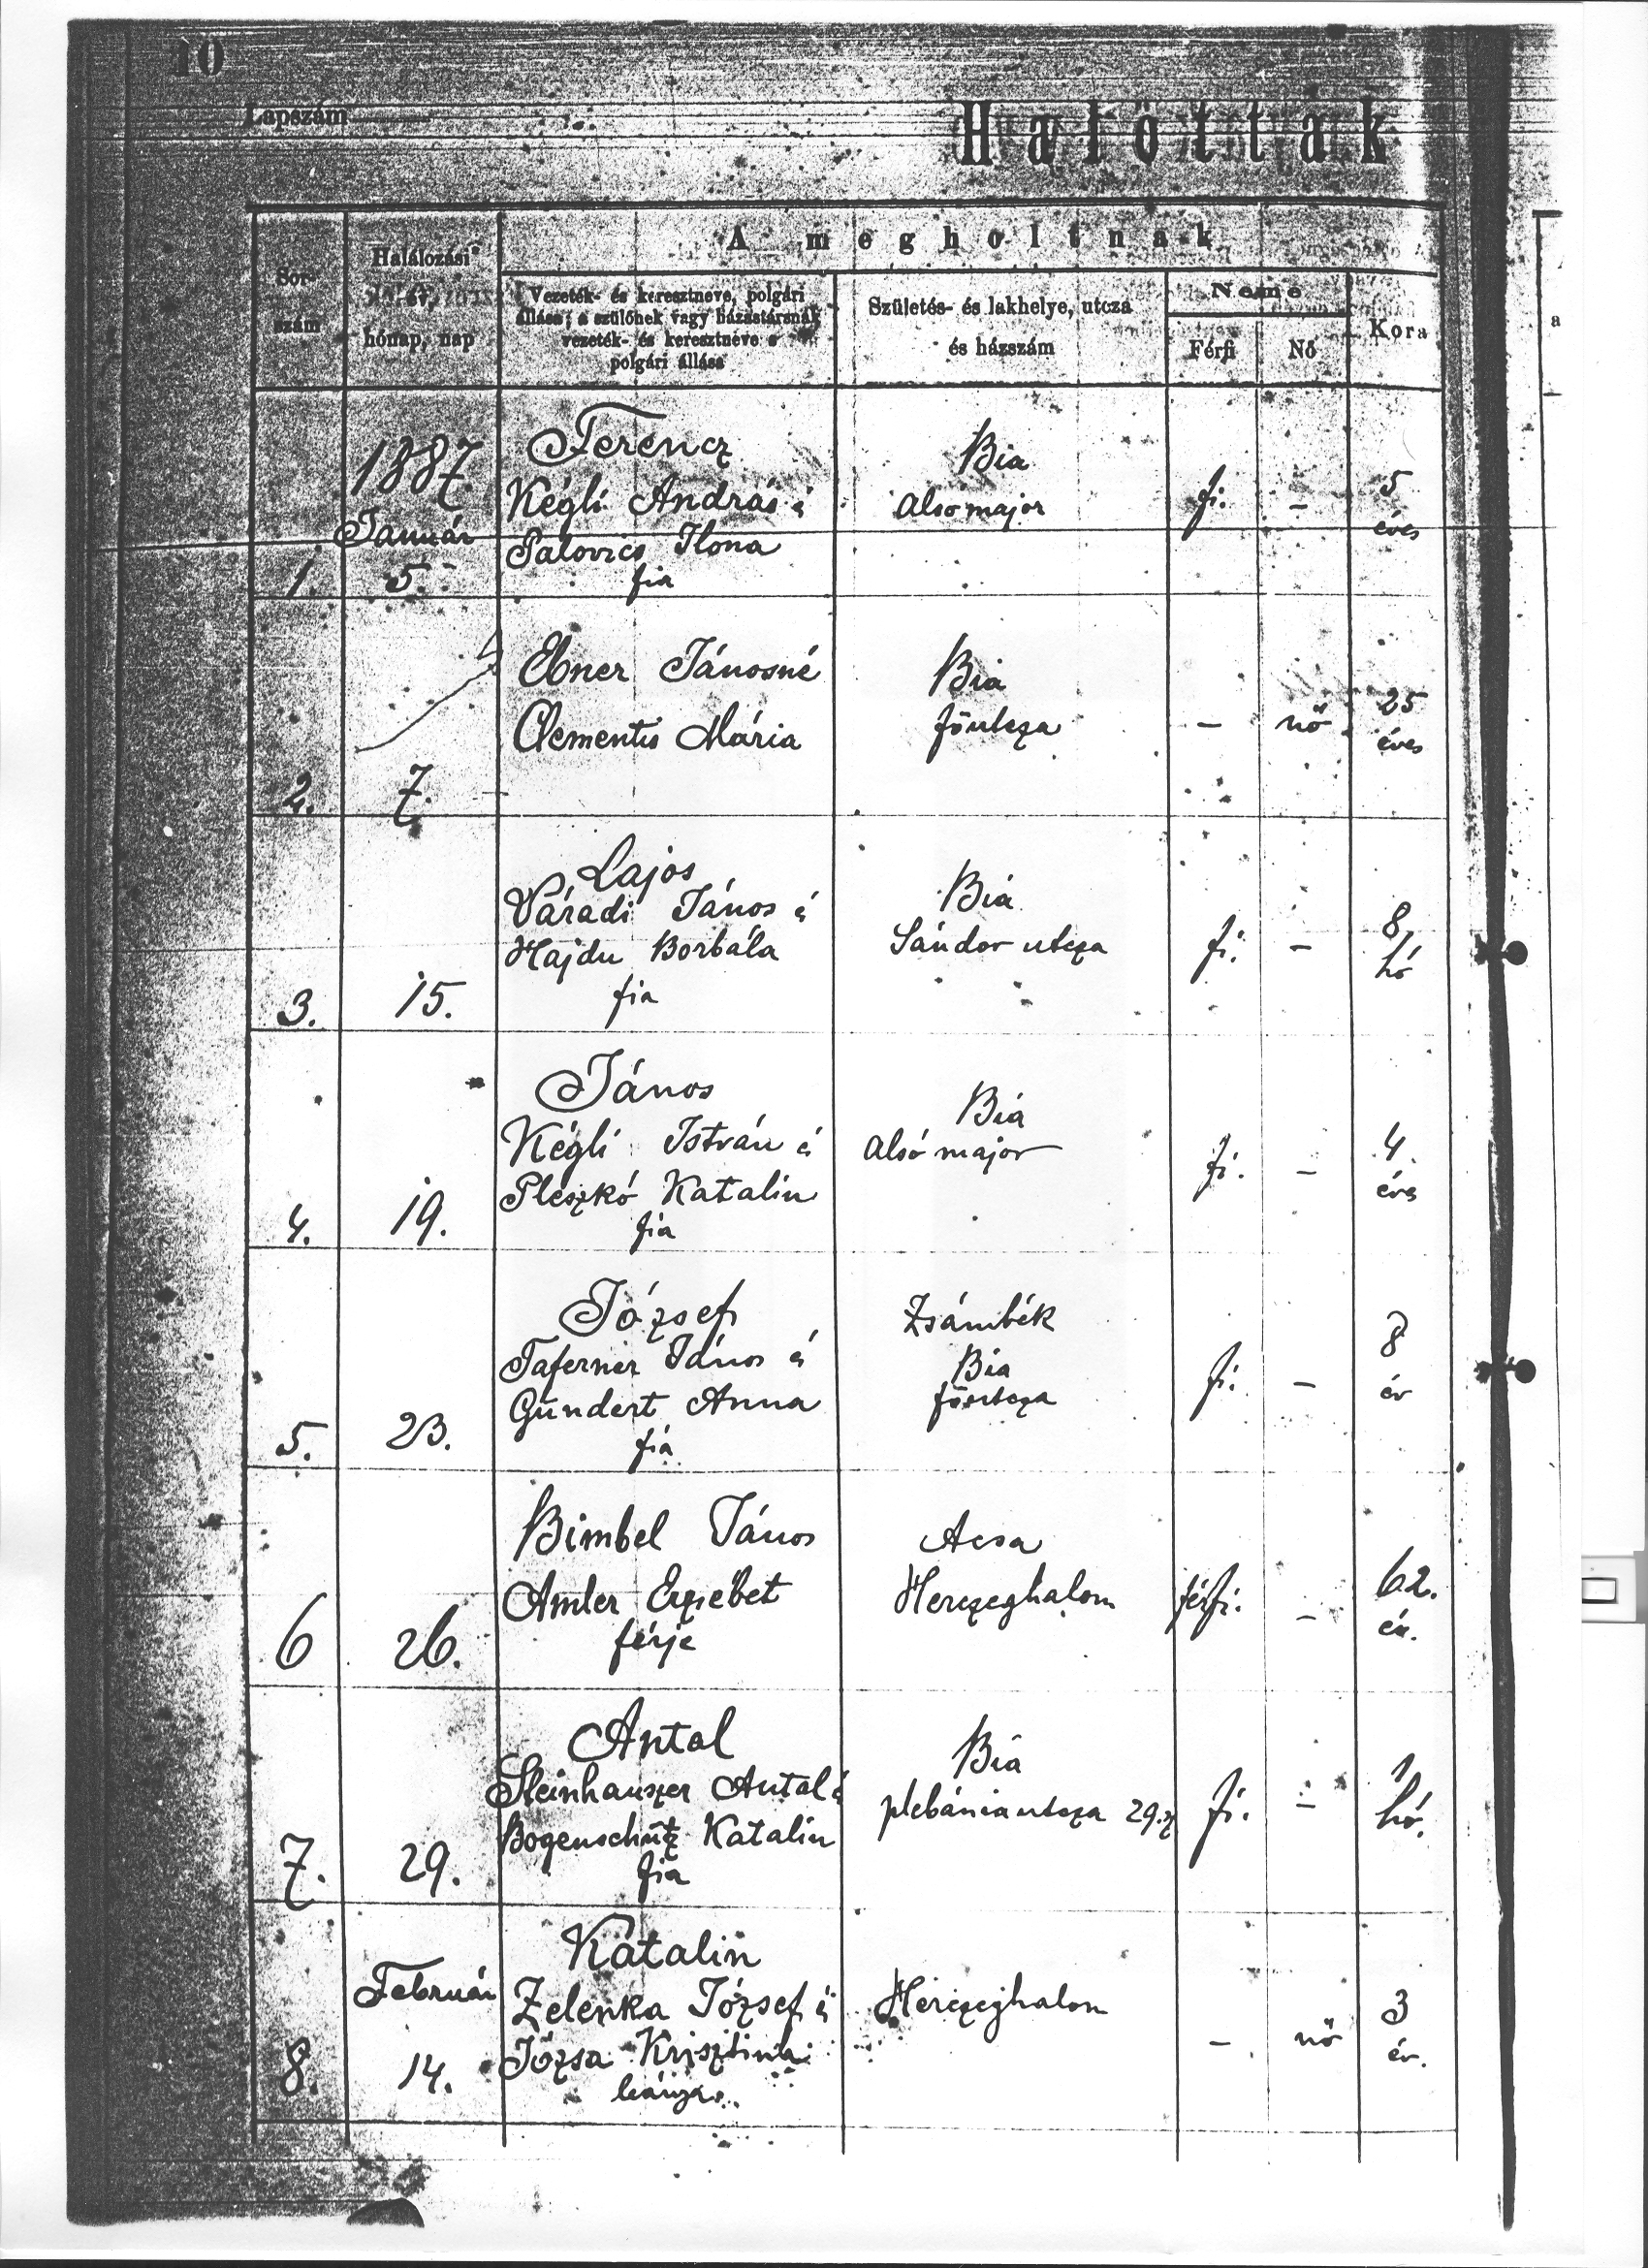 10
Lapszám
Halottak
A megholtnak
Sor-
szám
Halálozási
hónap, nap
Vezeték- és keresztneve, polgári
állása; a szülőnek vagy házastársnak
vezeték- és keresztneve s
polgári állása
Születés- és lakhelye, utcza
és házszám
Neme
Férfi
Nő
Kora
1887.
Január
1.
5.
Ferencz
Kégli András é
Palovics Ilona
fia
Bia
Alsómajor
fi.
–
5
éves
2.
7.
Ebner Jánosné
Clementis Mária
Bia
főutcza
–
nő
25
éves
3.
15.
Lajos
Váradi János é
Hajdu Borbála
fia
Bia
Sándor utcza
fi.
–
8
hó
4.
19.
János
Kégli István é
Pleszkó Katalin
fia
Bia
Alsó major
fi.
–
4
éves
5.
23.
József
Taferner János é
Gundert Anna
fia
Zsámbék
Bia
főutcza
fi.
–
8
év
6
26.
Bimbel János
Amler Erzsébet
férje
Acsa
Herczeghalom
férfi.
–
62.
év.
7.
29.
Antal
Steinhauszer Antal é
Bogenschütz Katalin
fia
Bia
plebánia utcza 29.
fi.
–
1
hó.
Február
8.
14.
Katalin
Zelenka József é
Józsa Krisztina
leánya
Herczeghalom
–
nő
3
év.